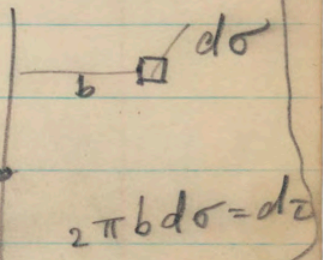 dσ
b
2πbdσ=dτ